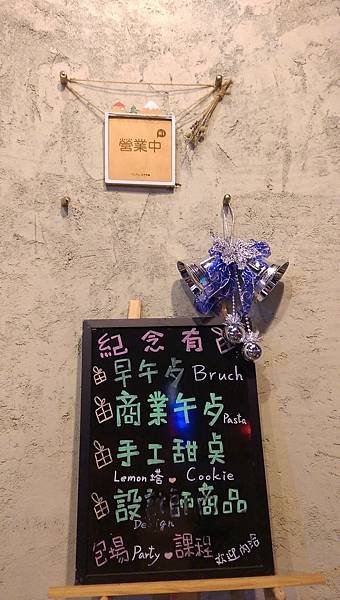 營業中
紀念有
早午歺 Bruch
商業午歺 Pasta
手工甜桌
Lemon塔 Cookie
設計師商品
Design
包場 Party 課程 歡迎內洽